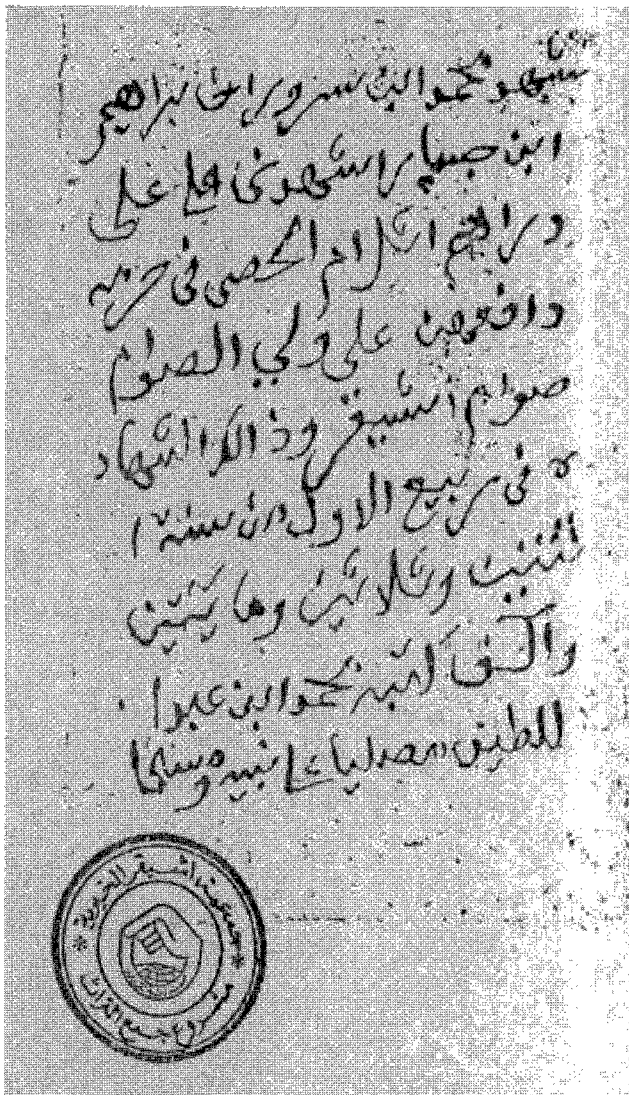 شهد محمد ابن سرور ابن ابراهيم
ابن جبر اشهدني على
دراهم الحصى في
على ولي الصوام
صوام اشيقر وذالك الشهاد
ه في ربيع الاول من سنة ا
اثنين وثلاثين ومايتين
والف كتبه محمد ابن عبدا
للطيف مصليا على نبيه ومسلما
جمعية اشيقر الخيرية
مشروع جمع التراث